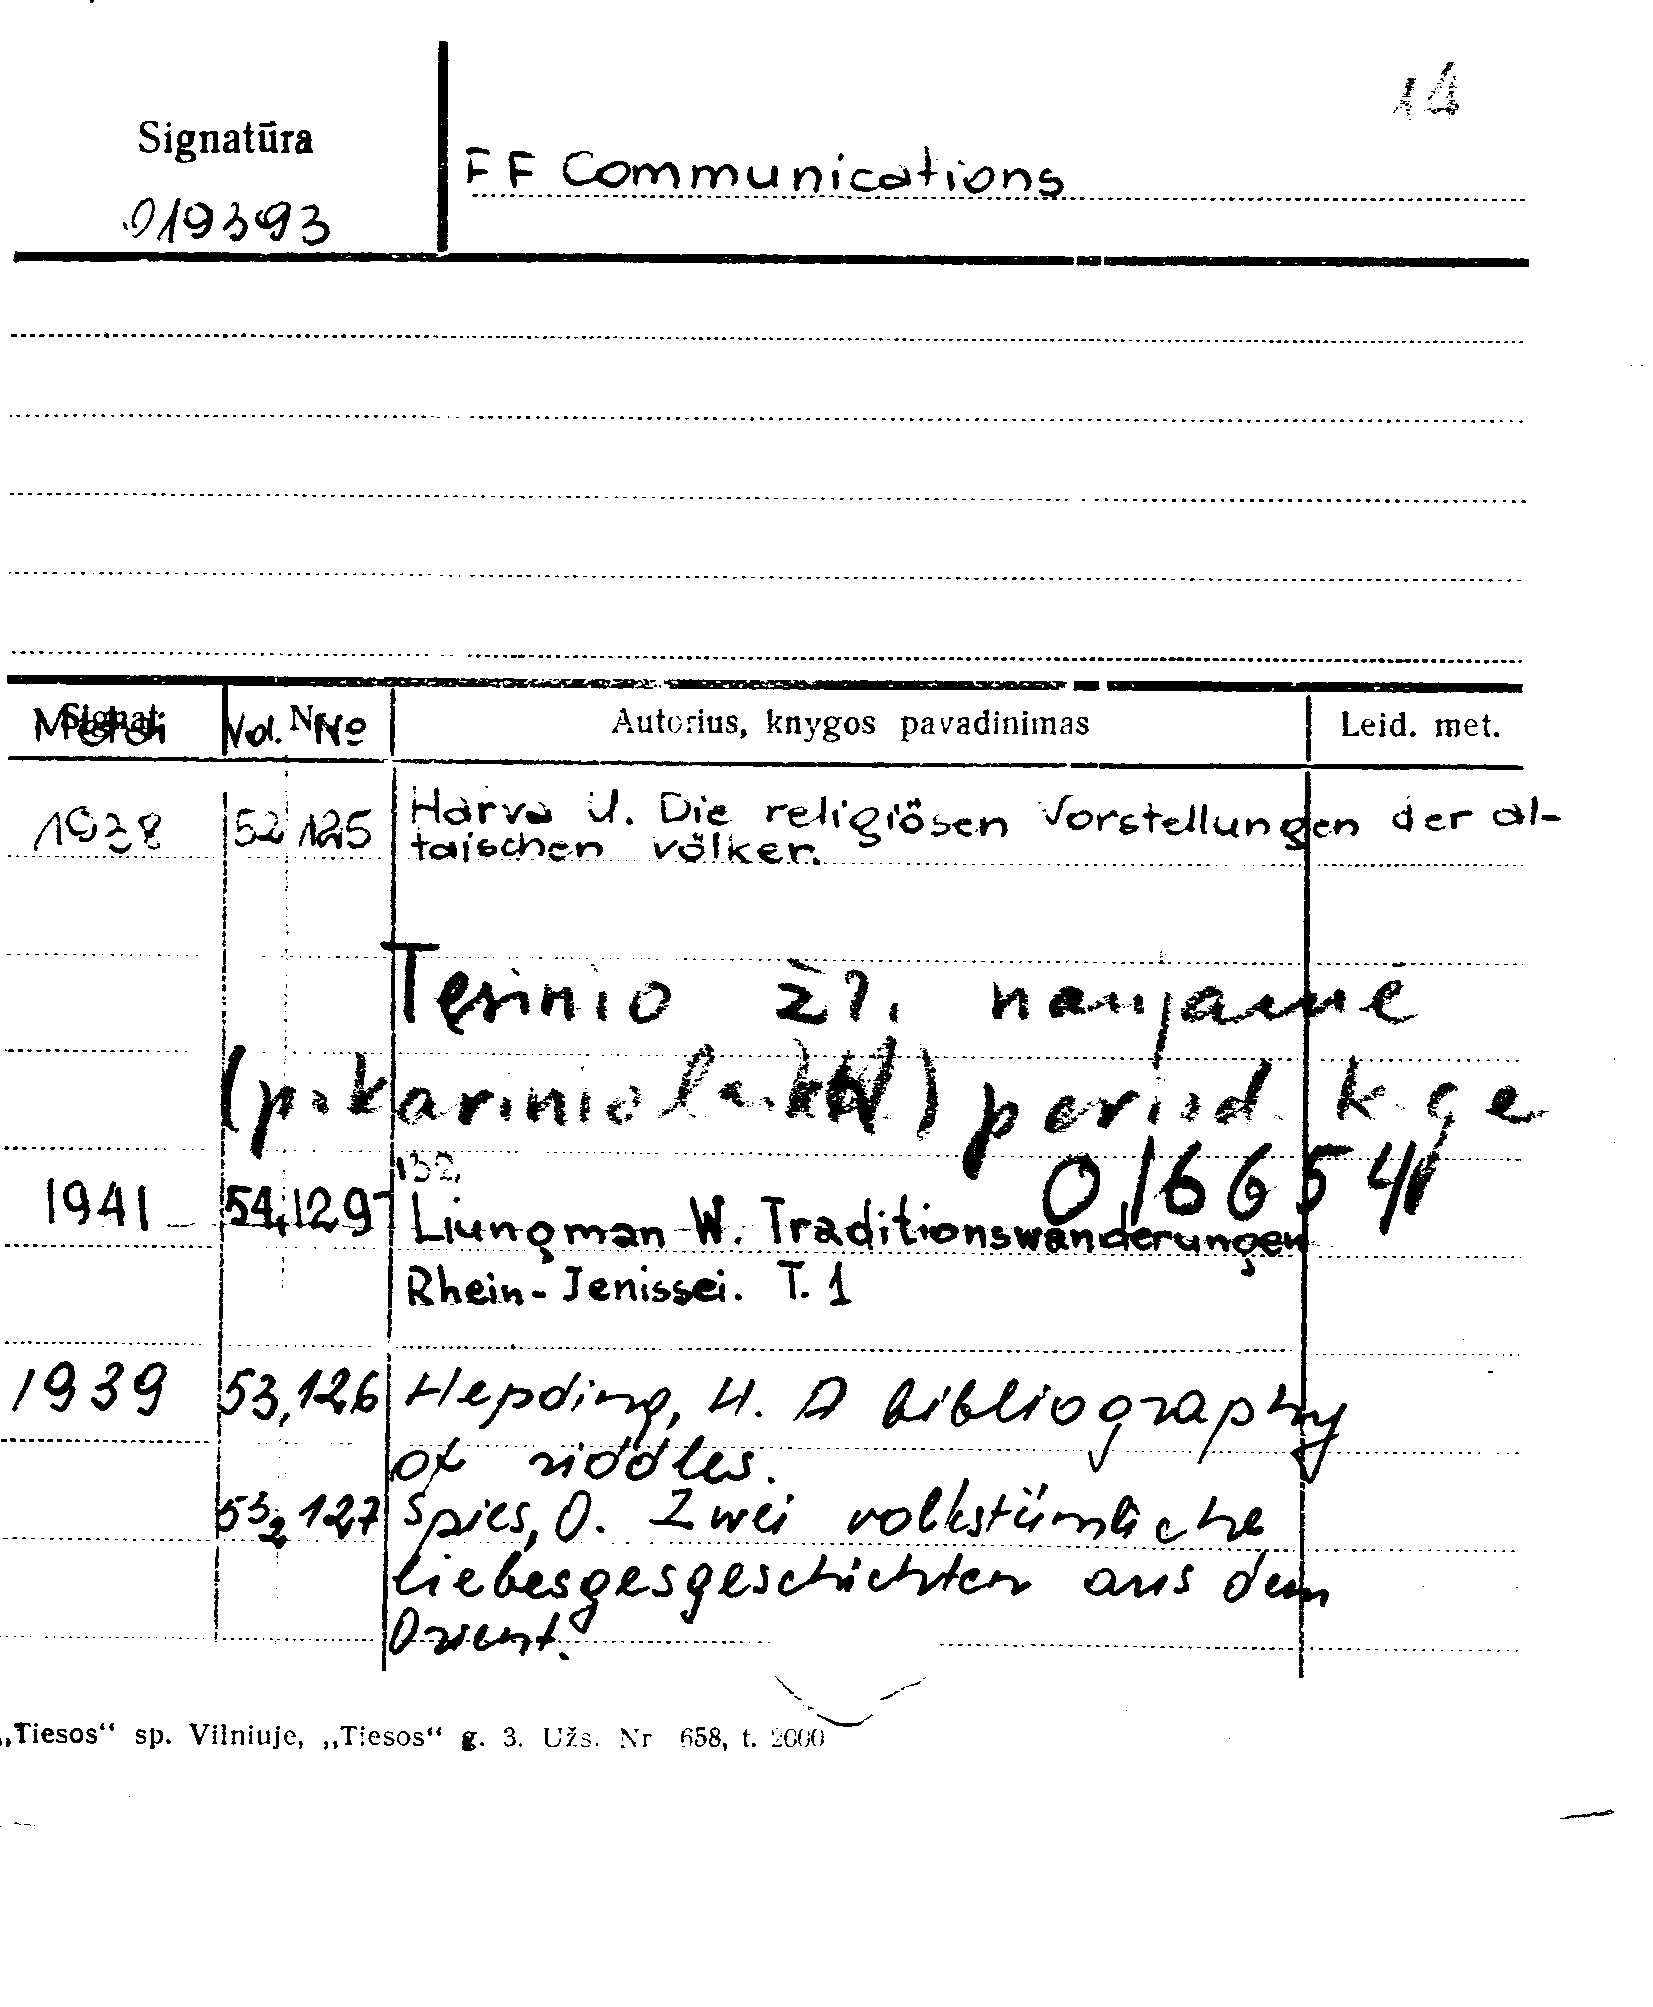 14
Signatūra
019393
FF Communications
Metai Vol. № Autorius, knygos pavadinimas Leid. met.
1938 52 125 Harva U. Die religiösen Vorstellungen der al-
taischen völker.
Tęsinio žr. naujame
(pokarinio laik.) period. k-ge
016654
1941 54,129-132, Liungman W. Traditionswanderungen
Rhein-Jenissei. T. 1
1939 53,126 Hepding, H. A bibliography
of riddles.
53,2 127 Spies, O. Zwei volkstümliche
liebesgesgeschichten aus dem
Orient.
„Tiesos“ sp. Vilniuje, „Tiesos“ g. 3. Užs. Nr 658, t. 2000